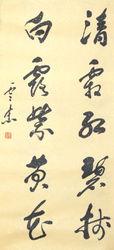 清霜紅碧樹
白露紫黃花